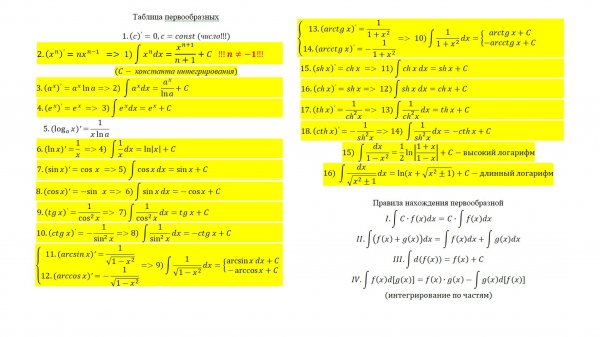 Таблица первообразных
1. (c)′ = 0, c = const (число!!!)
2. (xⁿ)′ = nxⁿ⁻¹ => 1) ∫ xⁿdx = xⁿ⁺¹/(n + 1) + C !!! n ≠ −1!!!
(C − константа интегрирования)
3. (aˣ)′ = aˣ ln a => 2) ∫ aˣdx = aˣ/ln a + C
4. (eˣ)′ = eˣ => 3) ∫ eˣdx = eˣ + C
5. (logₐ x)′ = 1/(x ln a)
6. (ln x)′ = 1/x => 4) ∫ 1/x dx = ln|x| + C
7. (sin x)′ = cos x => 5) ∫ cos x dx = sin x + C
8. (cos x)′ = −sin x => 6) ∫ sin x dx = − cos x + C
9. (tg x)′ = 1/cos² x => 7) ∫ 1/cos² x dx = tg x + C
10. (ctg x)′ = − 1/sin² x => 8) ∫ 1/sin² x dx = −ctg x + C
11. (arcsin x)′ = 1/√(1 − x²)
12. (arccos x)′ = − 1/√(1 − x²) => 9) ∫ 1/√(1 − x²) dx = {arcsin x dx + C
−arccos x + C
13. (arctg x)′ = 1/(1 + x²)
14. (arcctg x)′ = − 1/(1 + x²) => 10) ∫ 1/(1 + x²) dx = {arctg x + C
−arcctg x + C
15. (sh x)′ = ch x => 11) ∫ ch x dx = sh x + C
16. (ch x)′ = sh x => 12) ∫ sh x dx = ch x + C
17. (th x)′ = 1/ch²x => 13) ∫ 1/ch²x dx = th x + C
18. (cth x)′ = − 1/sh²x => 14) ∫ 1/sh²x dx = −cth x + C
15) ∫ dx/(1 − x²) = 1/2 ln|(1 + x)/(1 − x)| + C − высокий логарифм
16) ∫ dx/√(x² ± 1) = ln(x + √(x² ± 1)) + C − длинный логарифм
Правила нахождения первообразной
I. ∫ C · f(x)dx = C · ∫ f(x)dx
II. ∫(f(x) + g(x))dx = ∫ f(x)dx + ∫ g(x)dx
III. ∫ d(f(x)) = f(x) + C
IV. ∫ f(x)d[g(x)] = f(x) · g(x) − ∫ g(x)d[f(x)]
(интегрирование по частям)